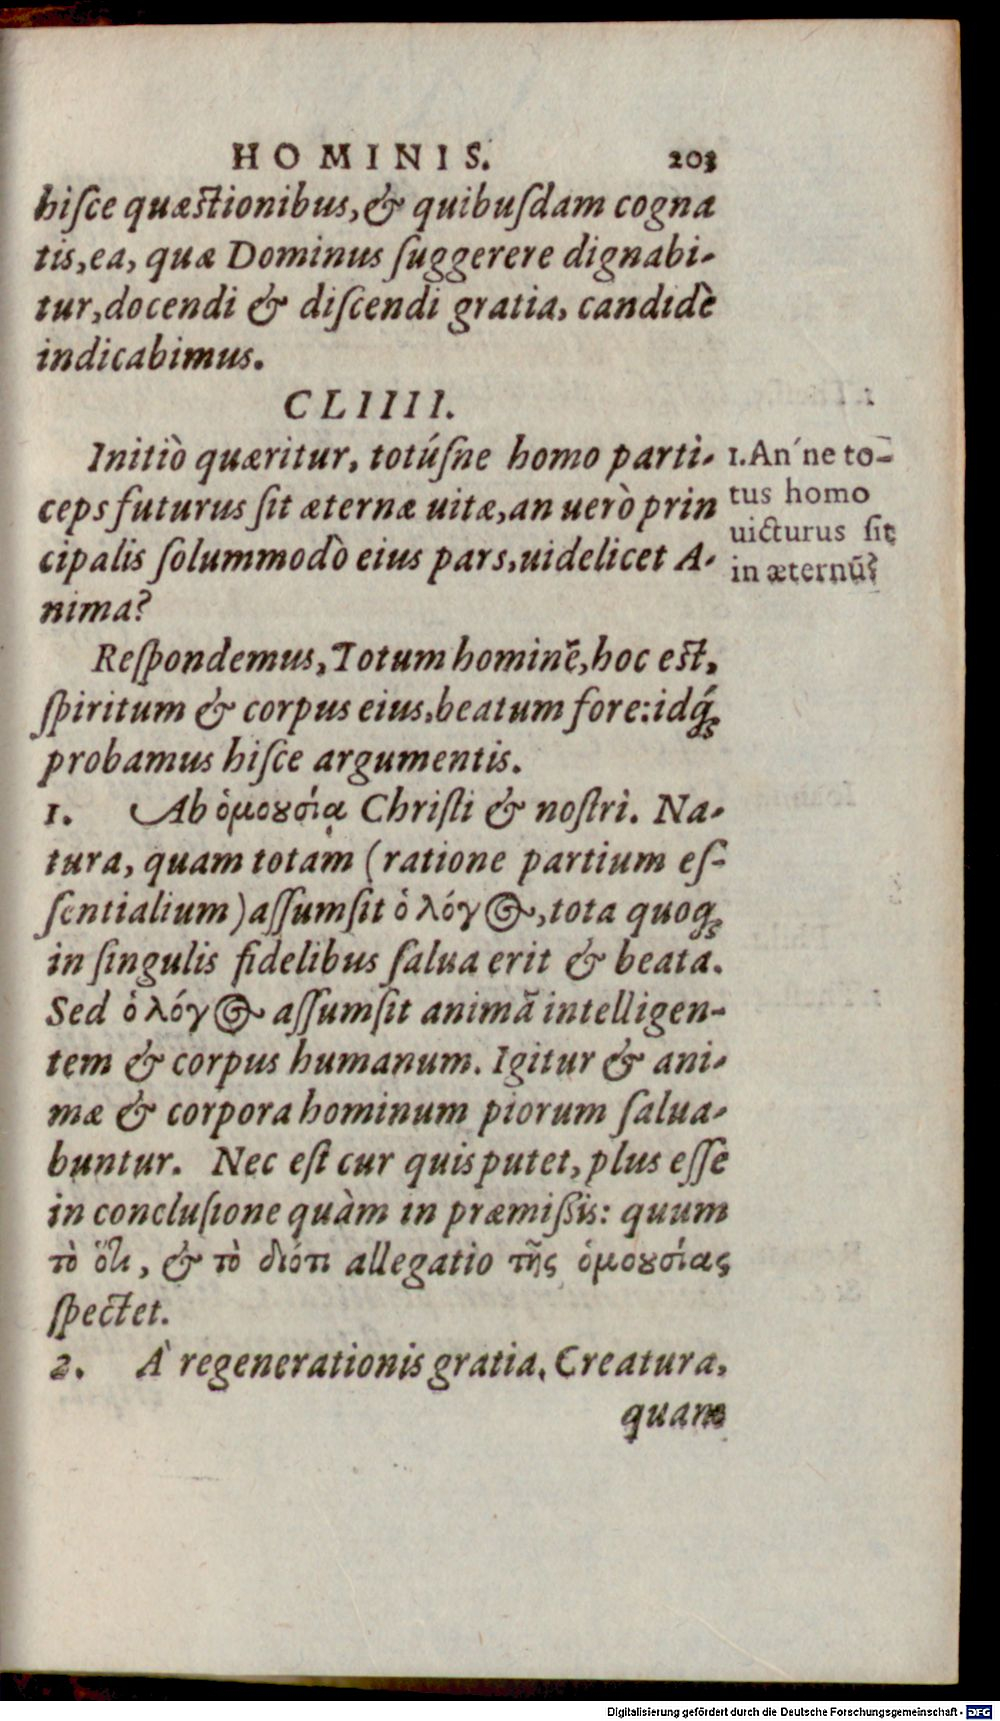 HOMINIS. 203
hiſce quæſtionibus, & quibuſdam cogna
tis, ea, quæ Dominus ſuggerere dignabi-
tur, docendi & diſcendi gratia, candidè
indicabimus.
CLIIII.
Initiò quæritur, totúſne homo parti-
ceps futurus ſit æternæ uitæ, an uerò prin
cipalis ſolummodò eius pars, uidelicet A-
nima?
1. An´ne to-
tus homo
uicturus ſit
in æternũ?
Reſpondemus, Totum hominẽ, hoc eſt,
ſpiritum & corpus eius, beatum fore: idq́;
probamus hiſce argumentis.
1. Ab ὁμουσίᾳ Chriſti & noſtri. Na-
tura, quam totam (ratione partium eſ-
ſentialium) aſſumſit ὁ λόγος, tota quoq;
in ſingulis fidelibus ſalua erit & beata.
Sed ὁ λόγος aſſumſit animã intelligen-
tem & corpus humanum. Igitur & ani-
mæ & corpora hominum piorum ſalua-
buntur. Nec eſt cur quis putet, plus eſſe
in concluſione quàm in præmiſſis: quum
τὸ ὅτι, & τὸ διότι allegatio τῆς ὁμουσίας
ſpectet.
2. À regenerationis gratia. Creatura,
quam
Digitalisierung gefördert durch die Deutsche Forschungsgemeinschaft - DFG